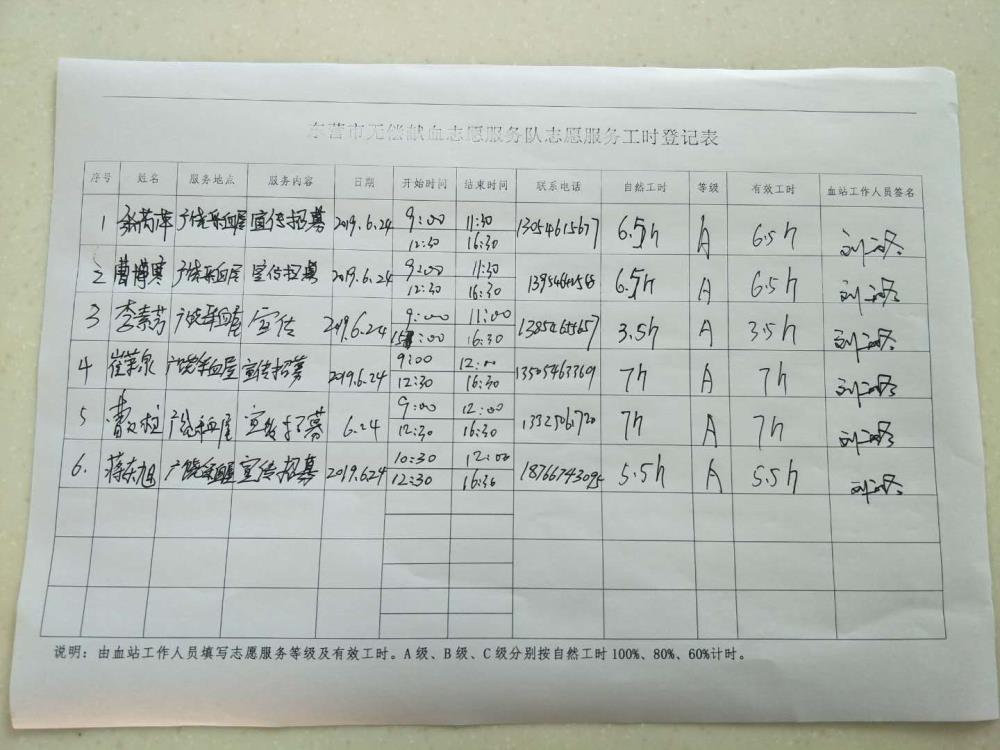 东营市无偿献血志愿服务队志愿服务工时登记表
序号 姓名 服务地点 服务内容 日期 开始时间 结束时间 联系电话 自然工时 等级 有效工时 血站工作人员签名
1 广饶采血屋 宣传招募 2019.6.24 9:00 11:30 13054615677 6.5h A 6.5h
12:30 16:30
2 曹博寒 广饶采血屋 宣传招募 2019.6.24 9:00 11:30 6.5h A 6.5h
12:30 16:30
3 李素芳 广饶采血屋 宣传 2019.6.24 9:00 11:00 3.5h A 3.5h
15:00 16:30
4 崔荣泉 广饶采血屋 宣传招募 2019.6.24 9:00 12:00 13505463769 7h A 7h
12:30 16:30
5 广饶采血屋 宣传招募 6.24 9:00 12:00 7h A 7h
12:30 16:30
6. 蒋东旭 广饶采血屋 宣传招募 2019.6.24 10:30 12:00 18766743095 5.5h A 5.5h
12:30 16:30
说明：由血站工作人员填写志愿服务等级及有效工时。A级、B级、C级分别按自然工时100%、80%、60%计时。